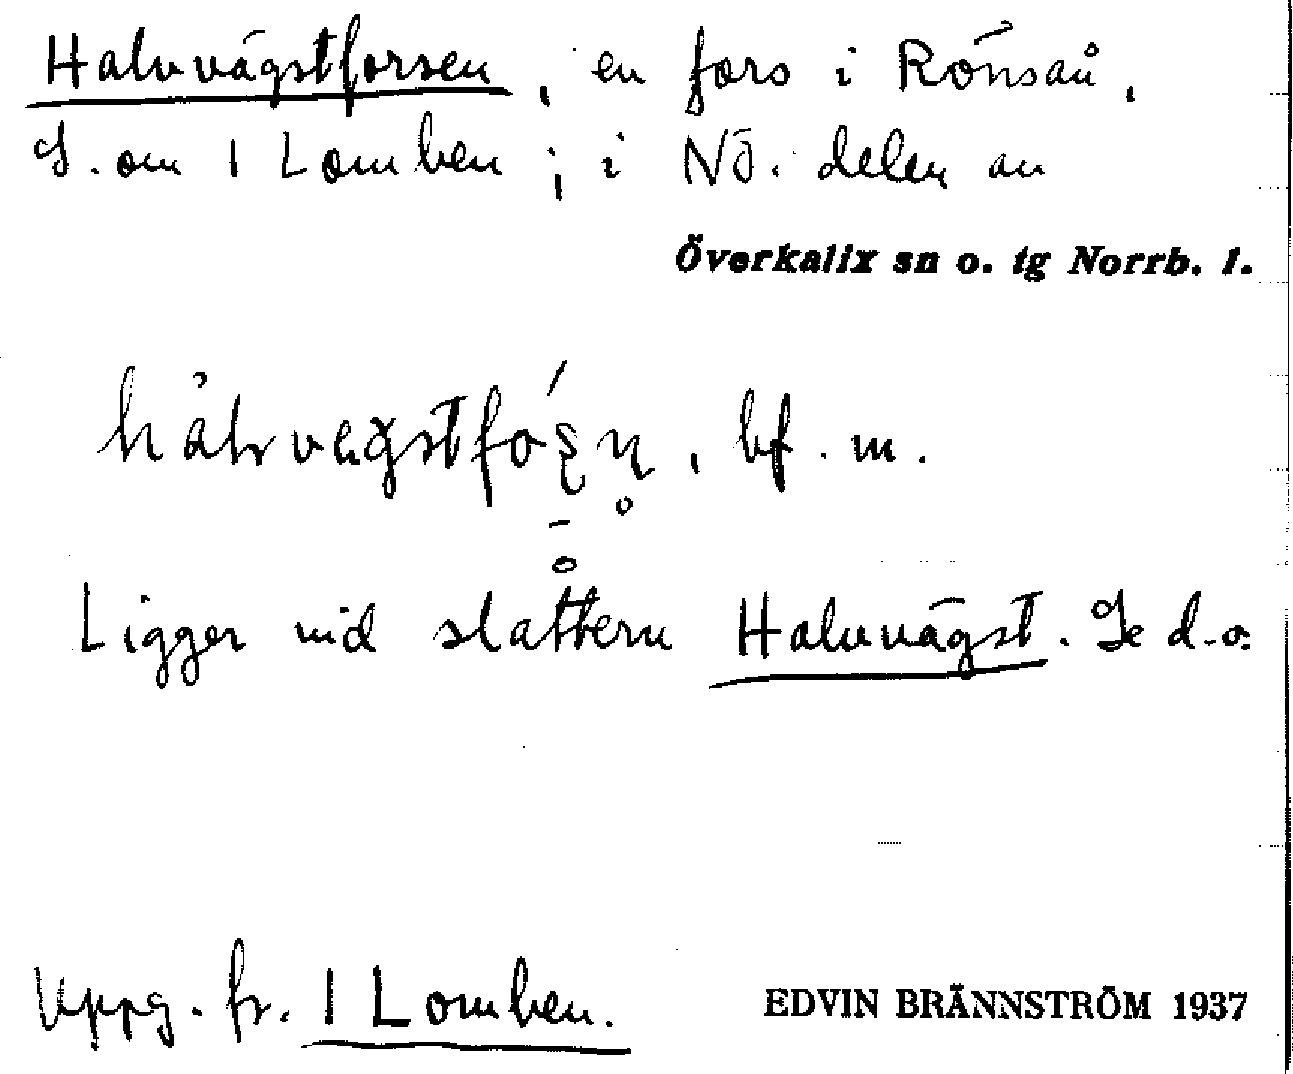 Halvvägstforsen, en fors i Rönsån,
S. om 1 Lomben; i NÖ. delen av
Överkalix sn o. tg Norrb. l.
bf. m.
Ligger vid slåttern Halvvägst. Se d.o.
Uppg. fr. 1 Lomben.
EDVIN BRÄNNSTRÖM 1937